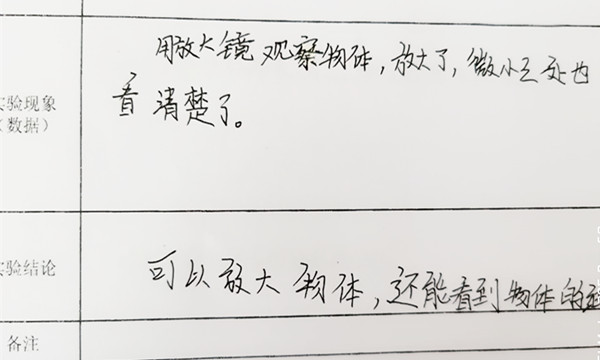 用放大镜观察物体，放大了，微小之处也
看清楚了。
实验现象
（数据）
可以放大物体，还能看到物体的
实验结论
备注